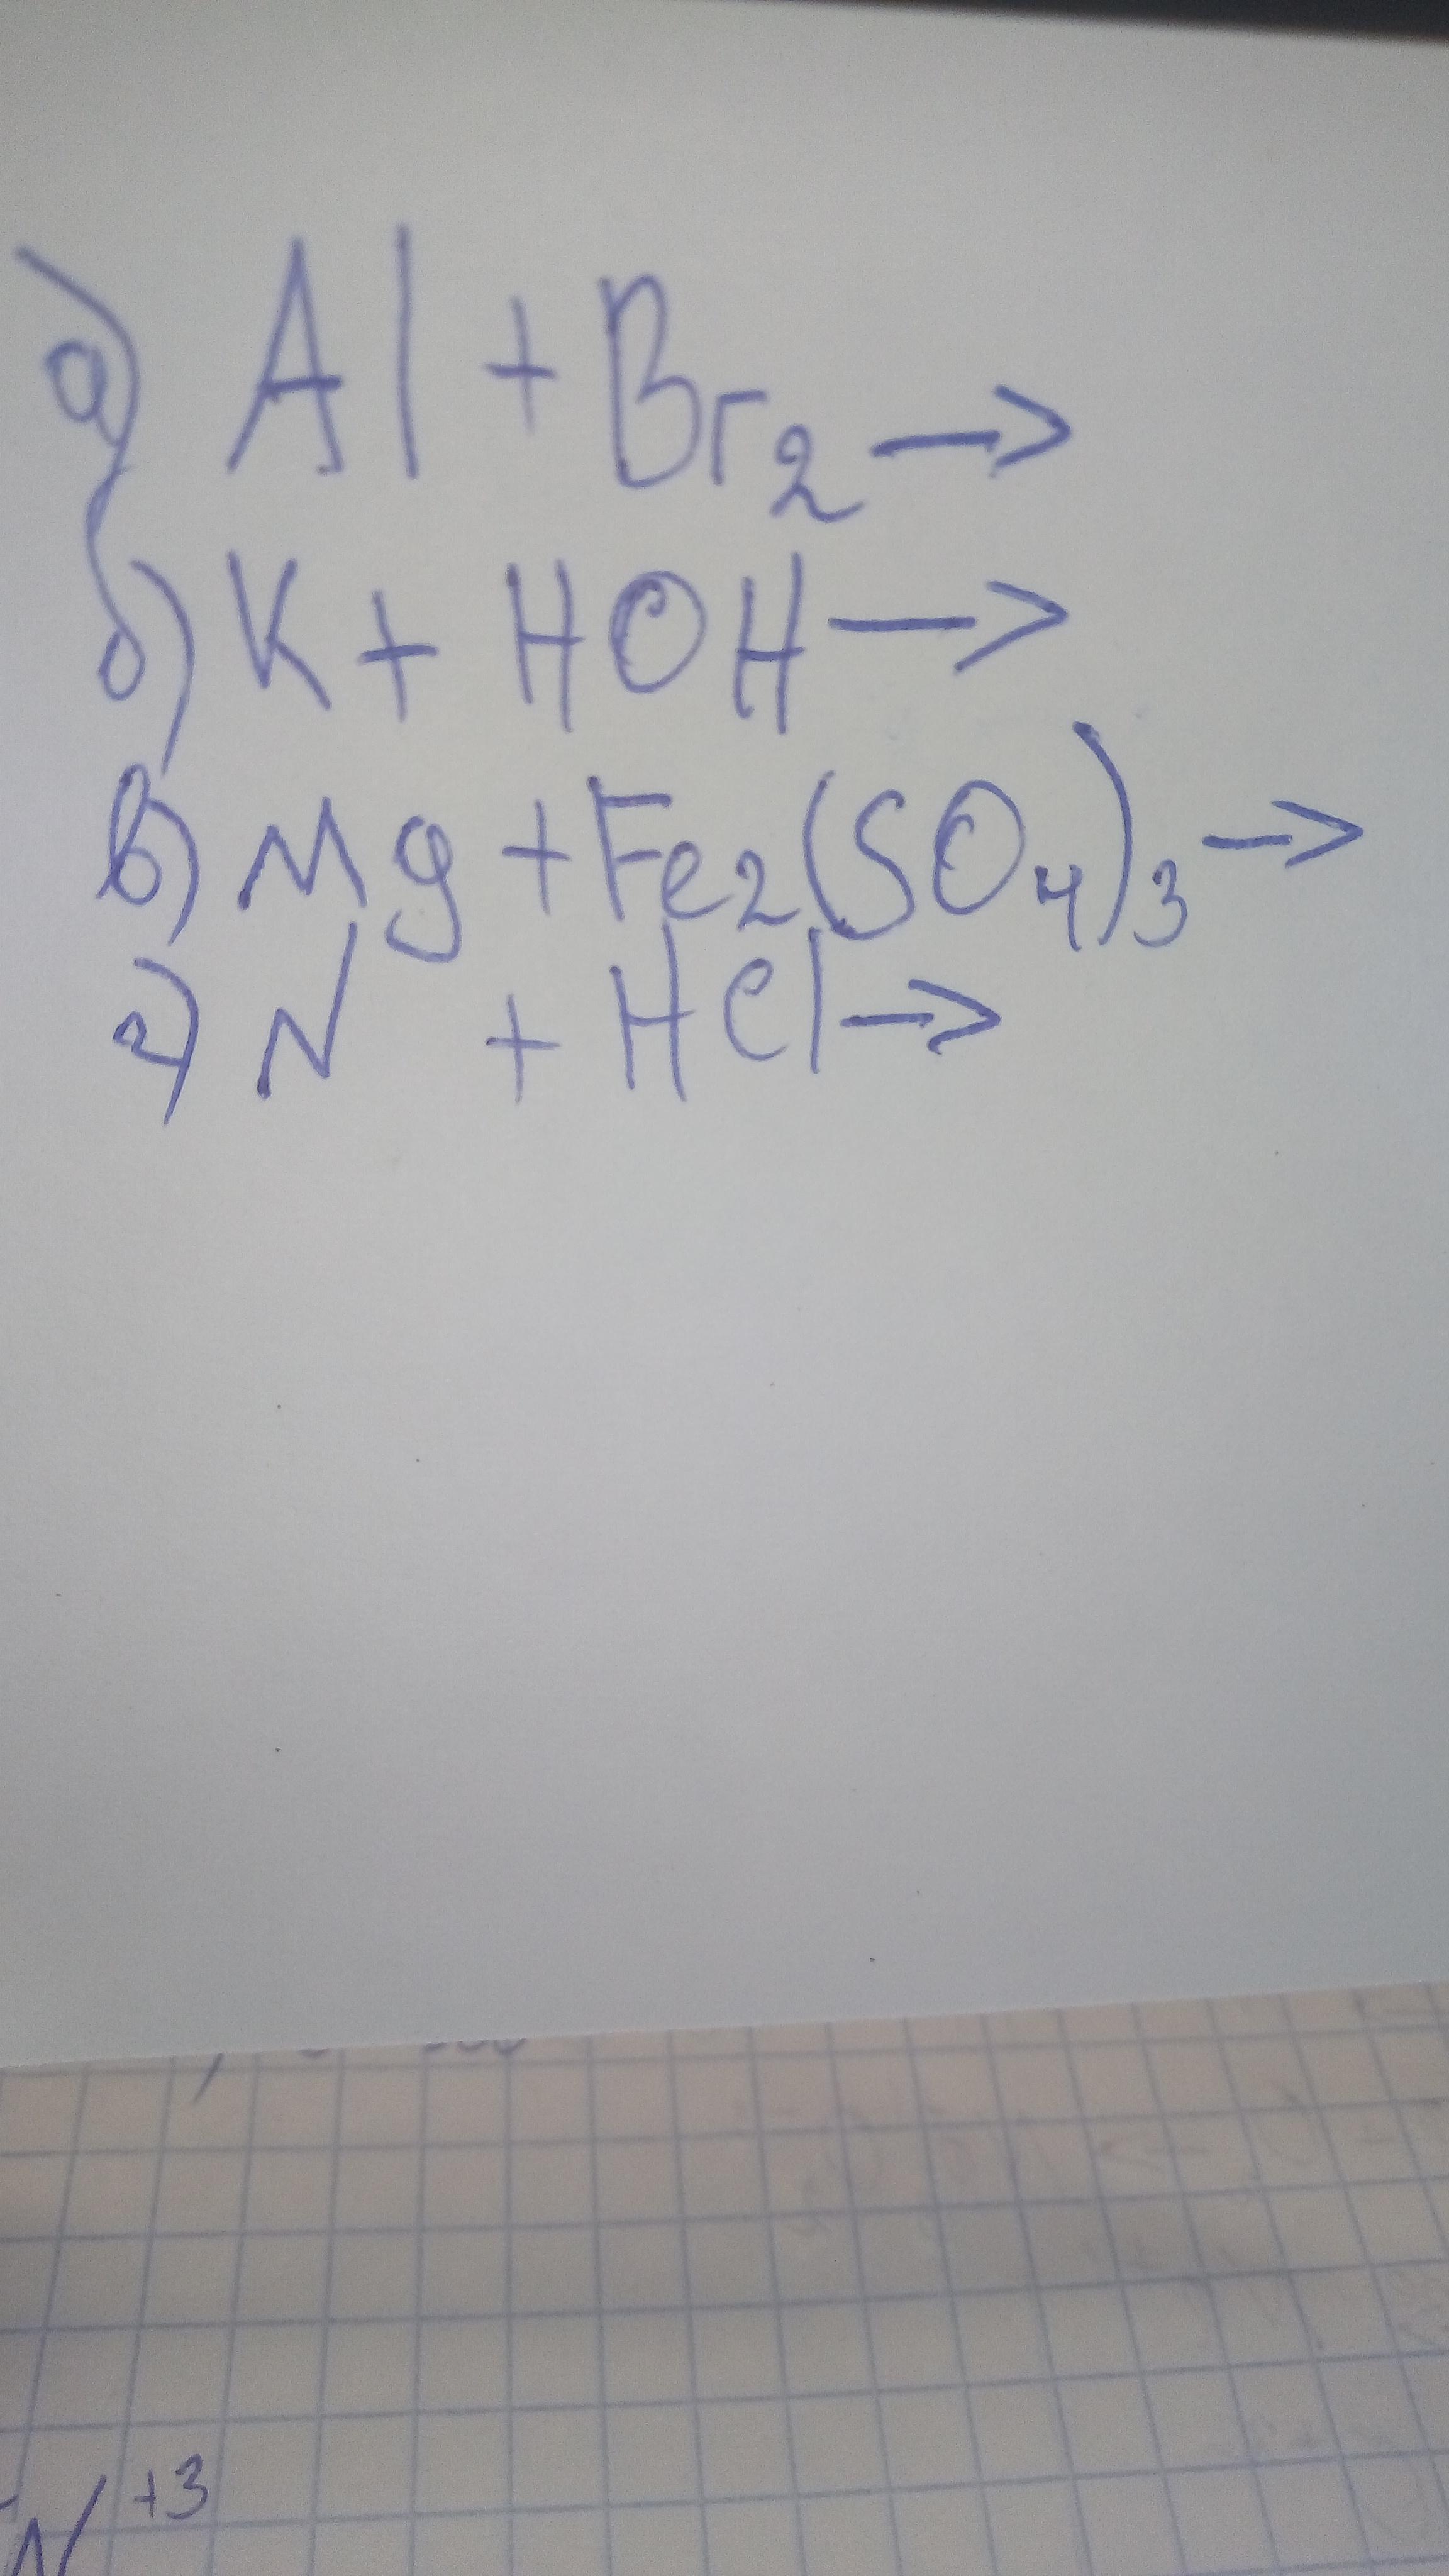 а) Al + Br₂ →
б) K + HOH →
в) Mg + Fe₂(SO₄)₃ →
г) N + HCl →
N⁺³